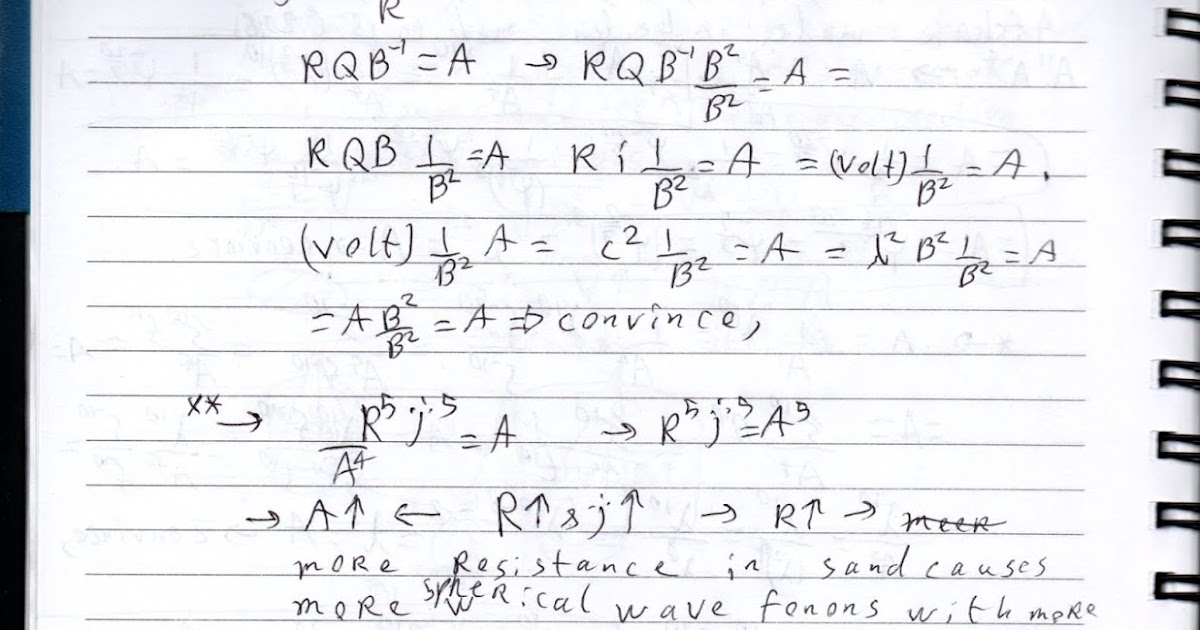 R
RQB⁻¹ = A → RQB⁻¹ B²/B² = A =
RQB 1/B² = A R i 1/B² = A = (volt) 1/B² = A.
(volt) 1/B² A = c² 1/B² = A = λ² B² 1/B² = A
= A B²/B² = A ⇒ convince,
** → R⁵j⁵/A⁴ = A → R⁵j⁵ = A⁵
→ A↑ ← R↑ & j↑ → R↑ →
more Resistance in sand causes
more spherical wave fonons with more